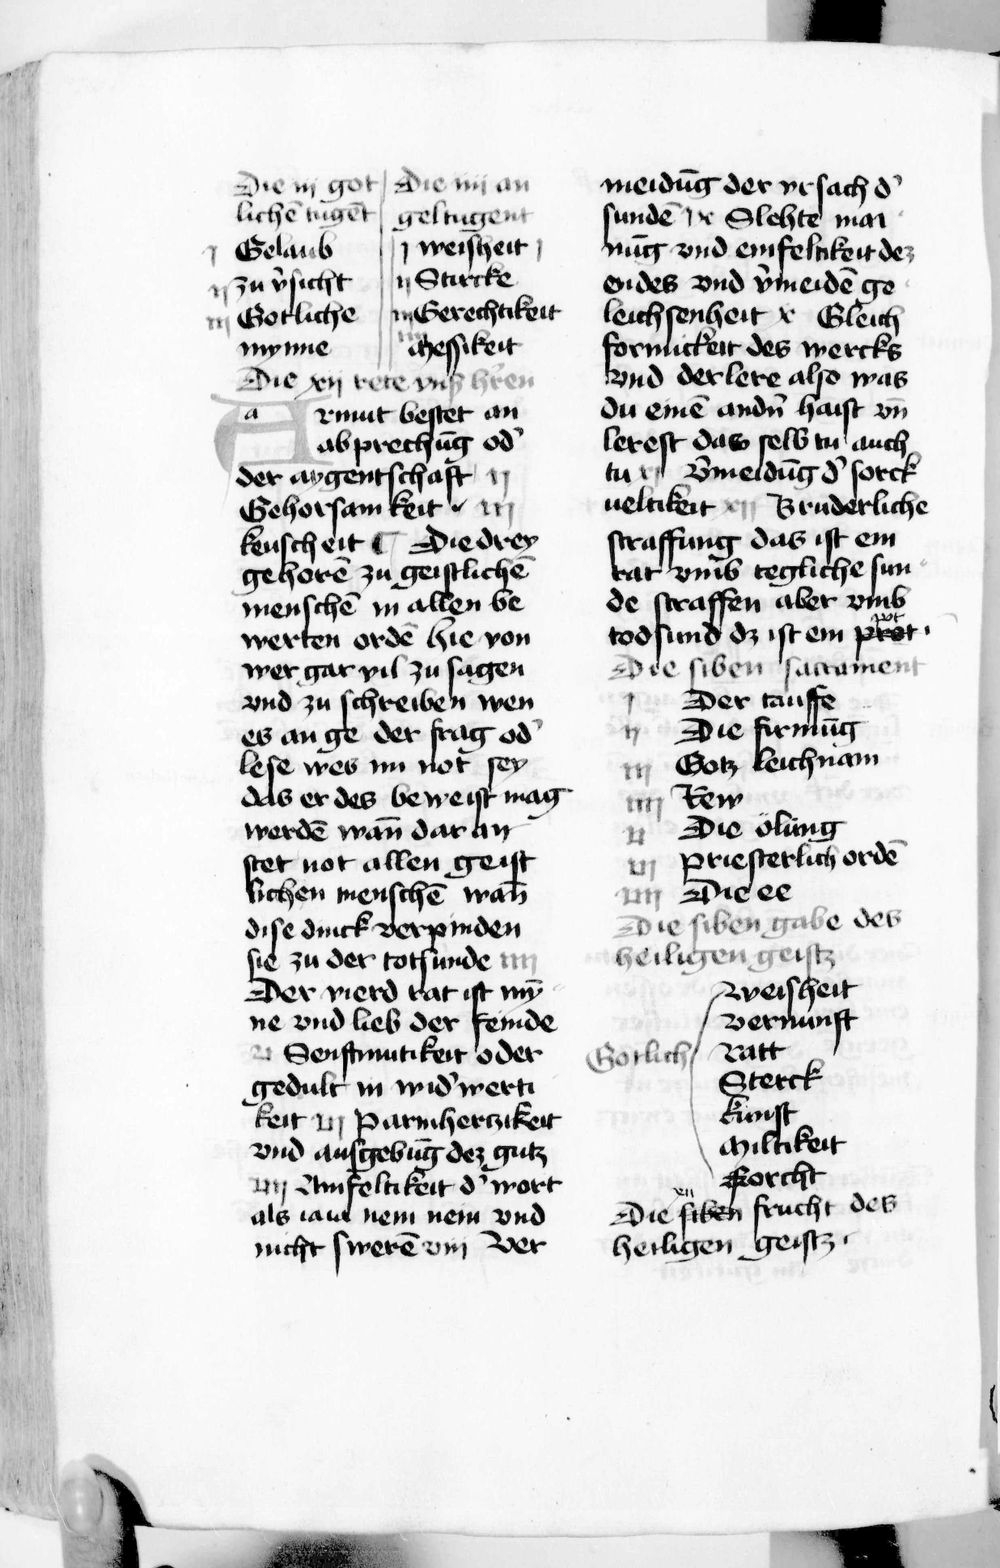 Die iij got
lichē tugēt
j Gelaub
ij zu v̉sicht
iij Gotliche
mynne
Die iiij an
geltugent
j weisheit j
ij Stercke
iij Gerechtikeit
iiij Messikeit
Die xij rete vnß hr̄en
Armut bestet an
ab prechūg od̉
der aygentschaft ij
Gehorsamkeit · iij
keuscheit ¶ Die drey
gehorē zu geistlichē
menschē in allen be
werten ordē hie von
wer gar vil zu sagen
vnd zu schreiben wen
es an ge der frag od̉
lese wes im not sey
das er des beweist mag
werdē wan̄ dar an
stet not allen geist
lichen menschē wan̄
dise dinck verpinden
sie zu der totsunde iiij
Der vierd rat ist mȳ
ne vnd lieb der feinde
v Senftmutikeit oder
gedult in wid̉werti
keit vj Parmhertzikeit
vnd ausgebūg dez gutz
vij Ainfeltikeit d̉ wort
als iaia nein nein vnd
nicht swerē viij Ver
meidūg der vrsach d̉
sundē ix Slehte mai
nūg vnd einfeltikeit dez
endes vnd v̉meidē ge
leichsenheit x Gleich
formickeit des wercks
vnd der lere also was
du einē andn̉ haist vn̄
lerest das selb tu auch
tu xj V̉meidūg d̉ sorck
ueltikeit xij Bruderliche
straffung das ist ein
rat vmb tegliche sun
de straffen aber vmb
todsund dz ist ein pot
Die siben sacrament
j Der tauffe
ij Die firmūg
iij Gotz leichnam
iiij Rew
v Die ölung
vj Priesterlich ordē
vij Die ee
Die siben gabe des
heiligen geistz
Gotlich
Weisheit
Vernunft
Ratt
Sterck
kunst
Miltikeit
Forcht
Die siben frucht des
heiligen geistz ·